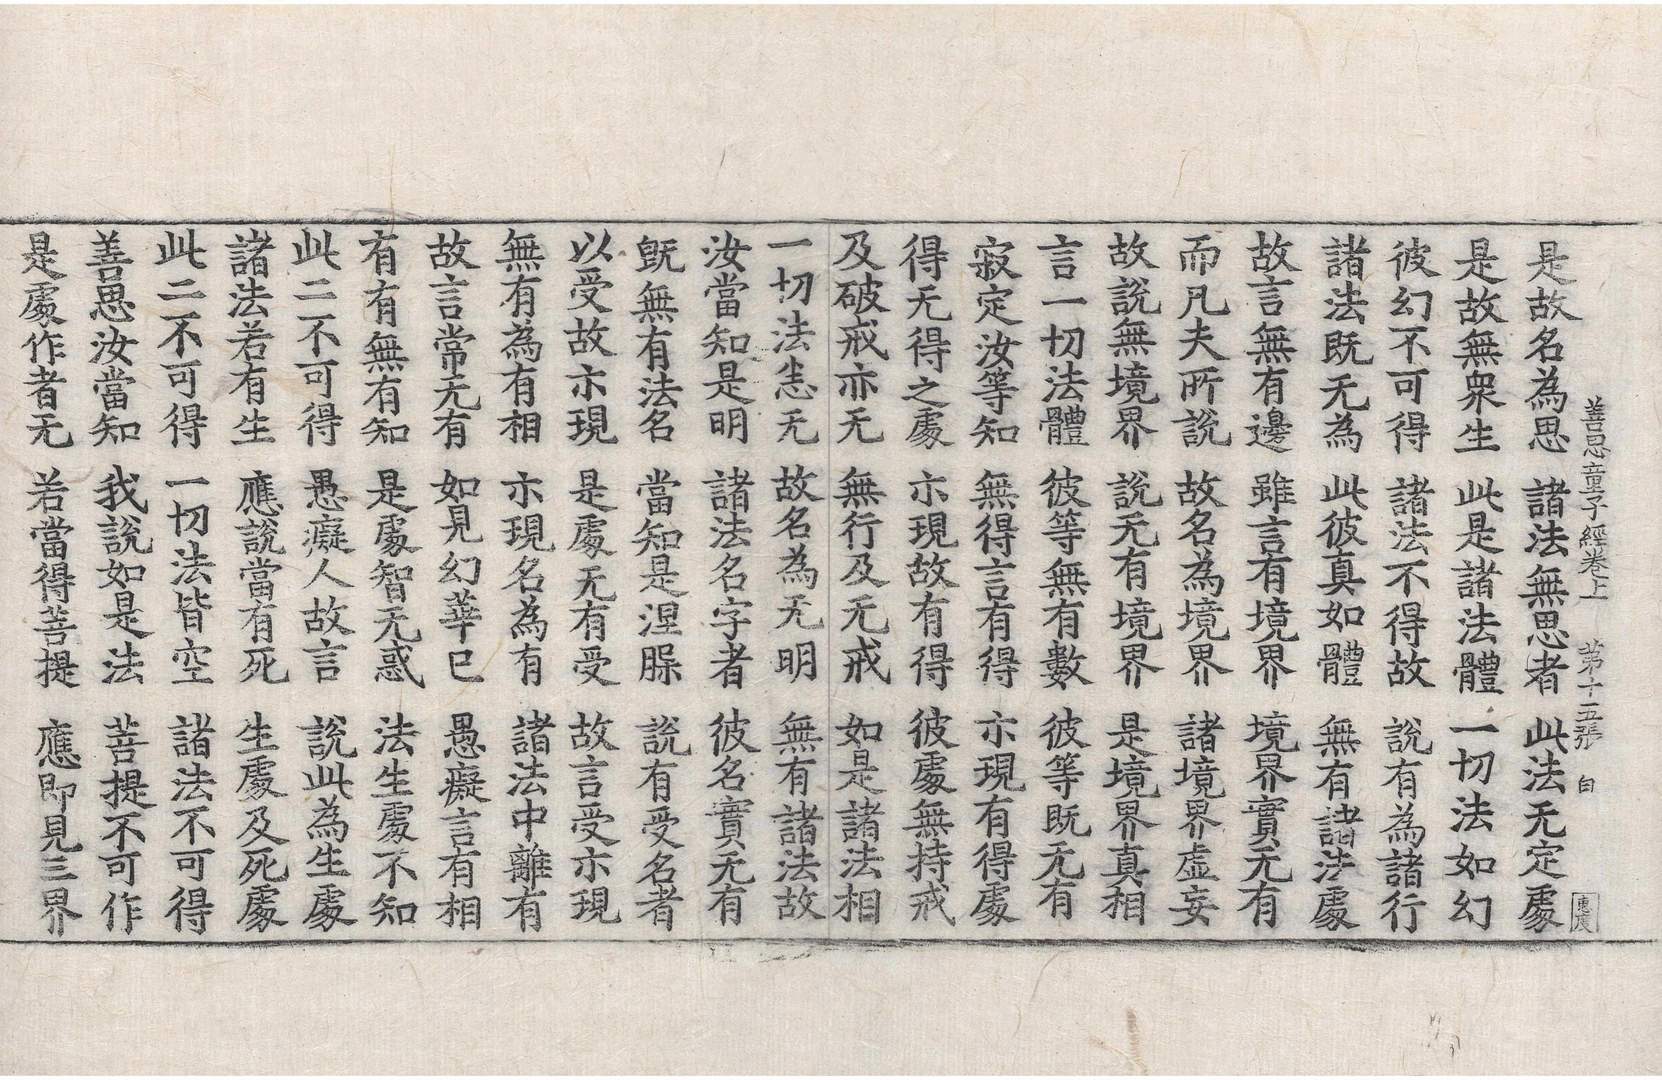 善思童子經卷上　第十五張　目
是故名為思　諸法無思者　此法无定處
是故無衆生　此是諸法體　一切法如幻
彼幻不可得　諸法不得故　說有為諸行
諸法既无為　此彼真如體　無有諸法處
故言無有邊　雖言有境界　境界實无有
而凡夫所說　故名為境界　諸境界虛妄
故說無境界　說无有境界　是境界真相
言一切法體　彼等無有數　彼等既无有
寂定汝等知　無得言有得　亦現有得處
得无得之處　亦現故有得　彼處無持戒
及破戒亦无　無行及无戒　如是諸法相
一切法悉无　故名為无明　無有諸法故
汝當知是明　諸法名字者　彼名實无有
旣無有法名　當知是涅𦙾　說有受名者
以受故亦現　是處无有受　故言受亦現
無有為有相　亦現名為有　諸法中離有
故言常无有　如見幻華已　愚癡言有相
有有無有知　是處智无惑　法生處不知
此二不可得　愚癡人故言　說此為生處
諸法若有生　應說當有死　生處及死處
此二不可得　一切法皆空　諸法不可得
善思汝當知　我說如是法　菩提不可作
是處作者无　若當得菩提　應即見三界